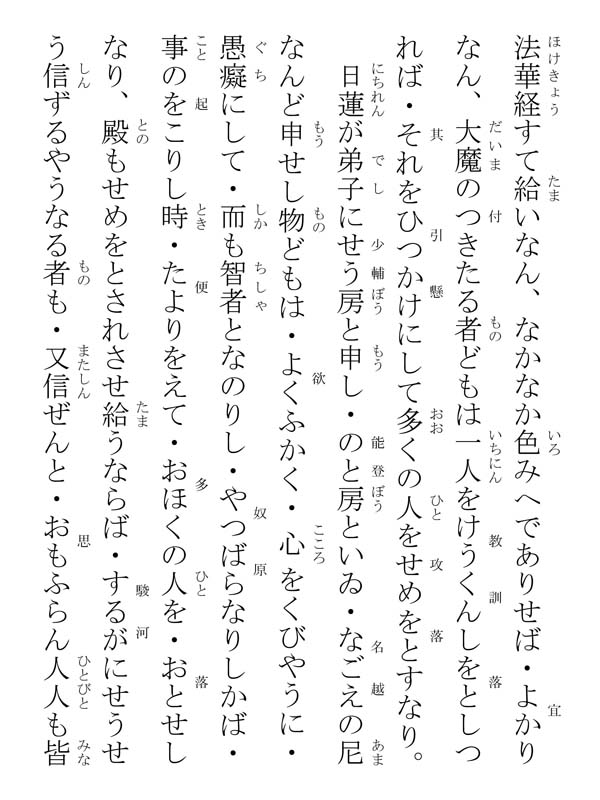 法華経すて給いなん、なかなか色みへでありせば・よかり
なん、大魔のつきたる者どもは一人をけうくんしをとしつ
れば・それをひつかけにして多くの人をせめをとすなり。
日蓮が弟子にせう房と申し・のと房といゐ・なごえの尼
なんど申せし物どもは・よくふかく・心をくびやうに・
愚癡にして・而も智者となのりし・やつばらなりしかば・
事のをこりし時・たよりをえて・おほくの人を・おとせし
なり、殿もせめをとされさせ給うならば・するがにせうせ
う信ずるやうなる者も・又信ぜんと・おもふらん人人も皆